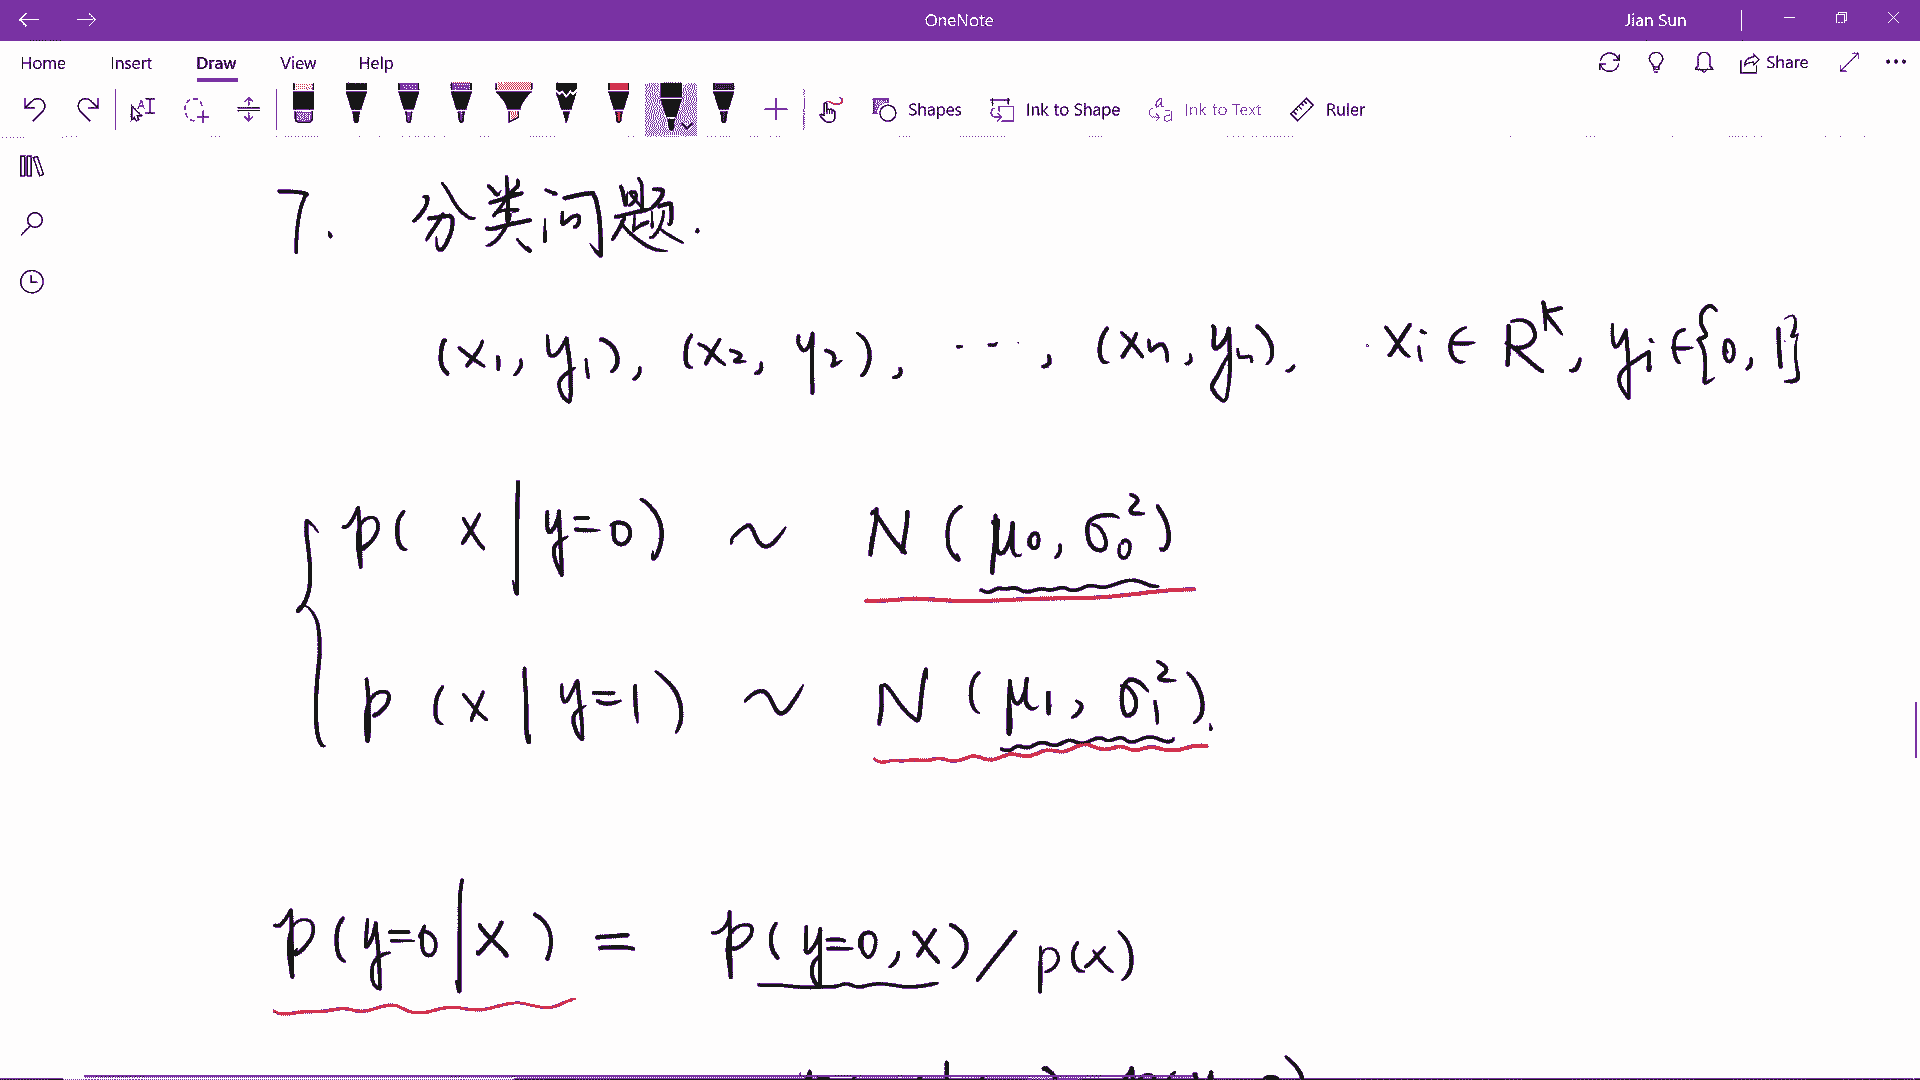 OneNote
Jian Sun
Home Insert Draw View Help
Share
Shapes Ink to Shape Ink to Text Ruler
7. 分类问题.
(x₁, y₁), (x₂, y₂), ..., (xₙ, yₙ), xᵢ ∈ Rᴷ, yᵢ ∈ {0, 1}
p( x | y=0 ) ~ N ( μ₀, σ₀² )
p ( x | y=1 ) ~ N ( μ₁, σ₁² ).
p( y=0 | x ) = p( y=0, x ) / p(x)